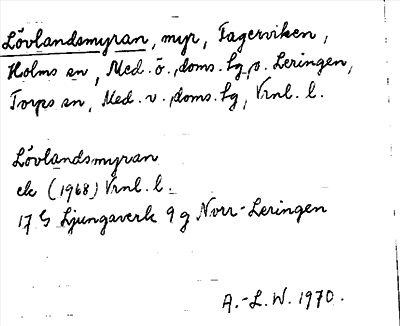 Lövlandsmyran, myr, Fagerviken,
Holms sn, Med. ö., doms. hg, o. Leringen,
Torps sn, Med. v., doms. hg, Vrnl. l.
Lövlandsmyran
ek (1968) Vrnl. l.
17 G Ljungaverk 9 g Norr-Leringen
A.-L. W. 1970.